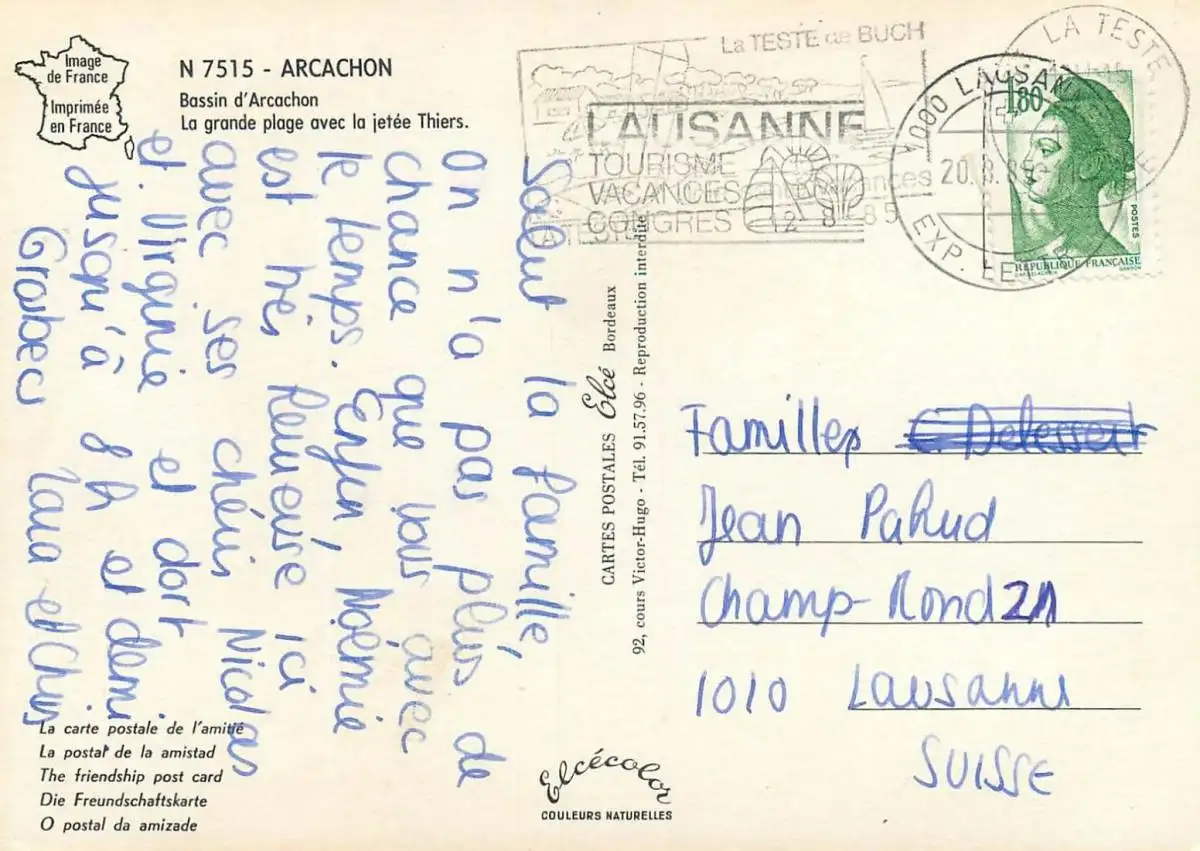 Image
de France
Imprimée
en France
N 7515 - ARCACHON
Bassin d'Arcachon
La grande plage avec la jetée Thiers.
La TESTE de BUCH
LAUSANNE
TOURISME
VACANCES
CONGRES
vacances
12 8 85
1000 LAUSANNE
20.8.85
EXP. LETTR
LA TESTE
1,80
POSTES
REPUBLIQUE FRANÇAISE
GANDON
Salut la famille,
On n'a pas plus de
chance que vous avec
le temps. Enfin, Noémie
est très heureuse ici
avec ses chéris Nicolas
et Virginie et dort
jusqu'à 8h et demi
Grosbecs
CARTES POSTALES Elcé Bordeaux
92, cours Victor-Hugo - Tél. 91.57.96 - Reproduction interdite
Familles
Jean Pahud
Champ-Rond 21
1010 Lausanne
SUISSE
La carte postale de l'amitié
La postal de la amistad
The friendship post card
Die Freundschaftskarte
O postal da amizade
Elcécolor
COULEURS NATURELLES